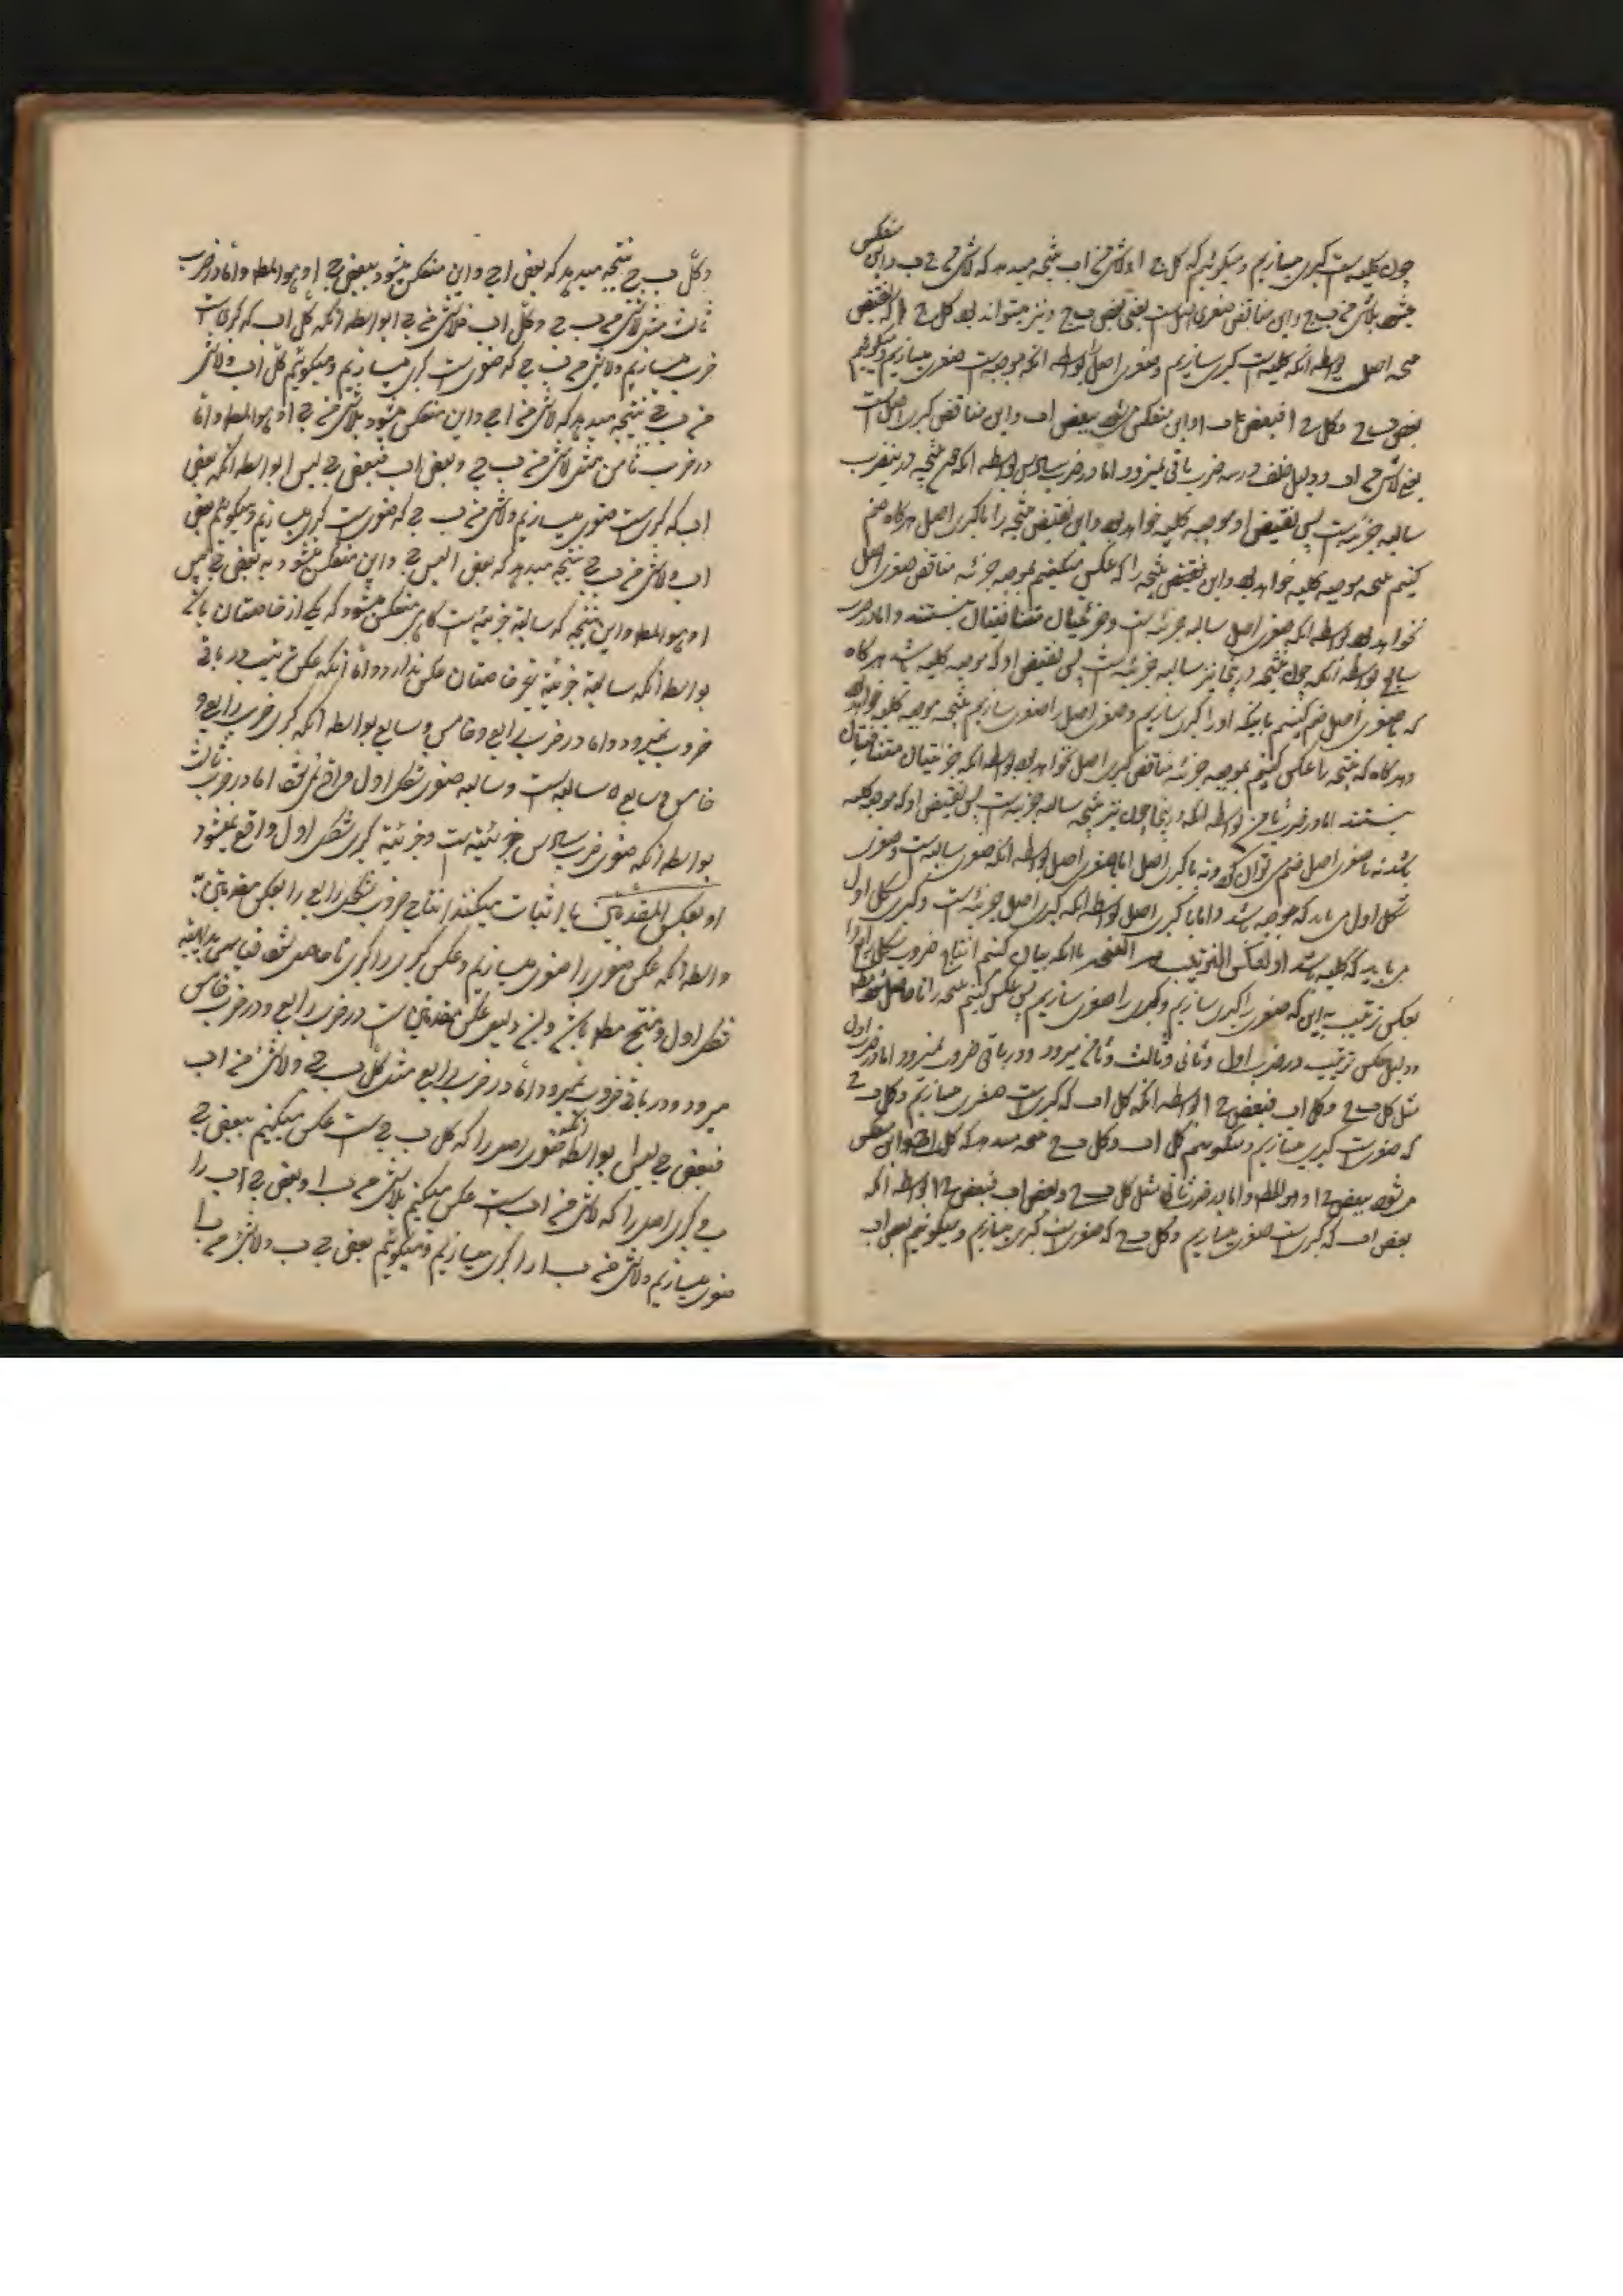 چون کلیه است کبری میسازیم و میگوئیم که کل ج ا و لاشئ من اب نتیجه میدهد که لاشئ من ج ب و این منعکس
میشود بلاشئ من ب ج و این مناقض صغری اصل است یعنی بعض ب ج و نیز میتواند بود کل ج ا که نقیض
نتیجه اصل بواسطه آنکه کلیه است کبری سازیم و صغری اصل را بواسطه آنکه موجبه است صغری میسازیم و میگوئیم
بعض ب ج و کل ج ا فبعض ب ا و این منعکس میشود ببعض اب و این مناقض کبری اصل است
یعنی لاشئ من اب و دلیل خلف در سه ضرب باقی نمیرود اما در ضرب سادس بواسطه آنکه نتیجه در ینضرب
سالبه جزئیه است پس نقیض او موجبه کلیه خواهد بود و این نقیض نتیجه را با کبری اصل هرگاه ضم
کنیم نتیجه موجبه کلیه خواهد بود و این نقیض نتیجه را که عکس میکنیم بموجبه جزئیه مناقض صغری اصل
نخواهد بود بواسطه آنکه صغری اصل سالبه جزئیه است و جزئیتان متناقیضان نیستند و اما در ضرب
سابع بواسطه آنکه چون نتیجه در ینجا نیز سالبه جزئیه است پس نقیض او که موجبه کلیه باشد هرگاه
که با صغری اصل ضم کنیم باینکه او را کبری سازیم و صغری اصل را صغری سازیم نتیجه موجبه کلیه خواهد بود
و هرگاه که نتیجه را عکس کنیم بموجبه جزئیه مناقض کبری اصل نخواهد بود بواسطه آنکه جزئیتان متناقیضان
نیستند اما در ضرب ثامن بواسطه آنکه در ینجا چون نیز نتیجه سالبه جزئیه است پس نقیض او که موجبه کلیه
باشد نه با صغری اصل ضم میتوان کرد و نه با کبری اصل اما با صغری اصل بواسطه آنکه صغری سالبه است و صغری
شکل اول می باید که موجبه باشد و اما با کبری اصل بواسطه آنکه کبری اصل جزئیه است و کبری شکل اول
می باید که کلیه باشد او بعکس الترتیب ثم النتیجه یا آنکه بیان کنیم انتاج ضروب شکل رابع را
بعکس ترتیب باین که صغری را کبری سازیم و کبری را صغری سازیم پس عکس کنیم نتیجه را تا حاصل شود مط
و دلیل عکس ترتیب در ضرب اول و ثانی و ثالث و ثامن میرود و در باقی ضروب نمیرود اما در ضرب اول
مثل کل ب ج و کل اب فبعض ج ا بواسطه آنکه کل اب که کبری است صغری میسازیم و کل ب ج
که صغری است کبری میسازیم و میگوئیم کل اب و کل ب ج نتیجه میدهد که کل ا ج و این منعکس
میشود ببعض ج ا و هو المط و اما در ضرب ثانی مثل کل ب ج و بعض اب فبعض ج ا بواسطه آنکه
بعض اب که کبری است صغری میسازیم و کل ب ج که صغری است کبری میسازیم و میگوئیم بعض اب
و کل ب ج نتیجه میدهد که بعض ا ج و این منعکس میشود ببعض ج ا و هو المط و اما در ضرب
ثالث مثل لاشئ من ب ج و کل اب فلاشئ من ج ا بواسطه آنکه کل اب که کبری است
ضرب میسازیم و لاشئ من ب ج که صغری است کبری میسازیم و میگوئیم کل اب و لاشئ
من ب ج نتیجه میدهد که لاشئ من ا ج و این منعکس میشود بلاشئ من ج ا و هو المط و اما
در ضرب ثامن مثل لاشئ من ب ج و بعض اب فبعض ج لیس ا بواسطه آنکه بعض
اب که کبری است صغری میسازیم و لاشئ من ب ج که صغری است کبری میسازیم و میگوئیم بعض
اب و لاشئ من ب ج نتیجه میدهد که بعض ا لیس ج و این منعکس میشود به بعض ج لیس
ا و هو المط و این نتیجه که سالبه جزئیه است گاهی منعکس میشود که یکی از خاصتان باشد
بواسطه آنکه سالبه جزئیه غیر خاصتان عکس ندارد و اما آنکه عکس ترتیب در باقی
ضروب نمیرود و اما در ضرب رابع و خامس و سابع بواسطه آنکه کبری ضرب رابع و
خامس و سابع سالبه است و سالبه صغری شکل اول واقع نمی‌شود اما در ضرب ثالث
بواسطه آنکه صغری ضرب سادس جزئیه است و جزئیه کبری شکل اول واقع نمیشود
او بعکس المقدمتین یا اثبات میکنند انتاج ضروب شکل رابع را بعکس مقدمتین
واسطه آنکه عکس صغری را صغری میسازیم و عکس کبری را کبری تا حاصل شود قیاسی بر هیئة
شکل اول و منتج مط باشد و این دلیل عکس مقدمتین است در ضرب رابع و در ضرب خامس
میرود و در باقی ضروب نمیرود اما در ضرب رابع مثل کل ب ج و لاشئ من اب
فبعض ج لیس ا بواسطه آنکه صغری اصل را که کل ب ج است عکس میکنیم ببعض ج
ب و کبری اصل را که لاشئ من اب است عکس میکنیم بلاشئ من ب ا و بعض ج ب را
صغری میسازیم و لاشئ من ب ا را کبری میسازیم و میگوئیم بعض ج ب و لاشئ من ب ا